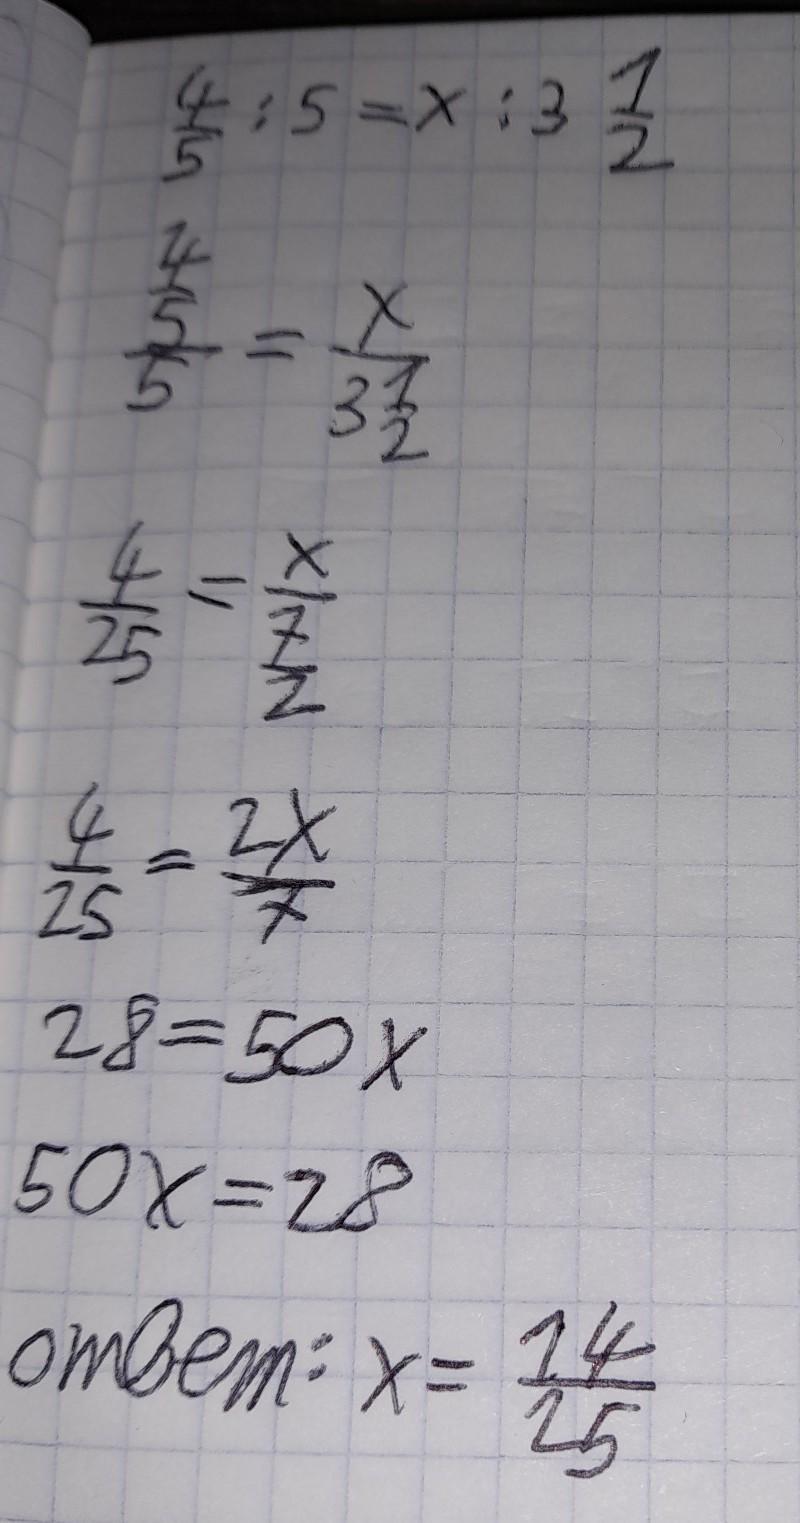 4/5 : 5 = x : 3 1/2
4/5/5 = x/3 1/2
4/25 = x/7/2
4/25 = 2x/7
28 = 50x
50x = 28
ответ: x = 14/25